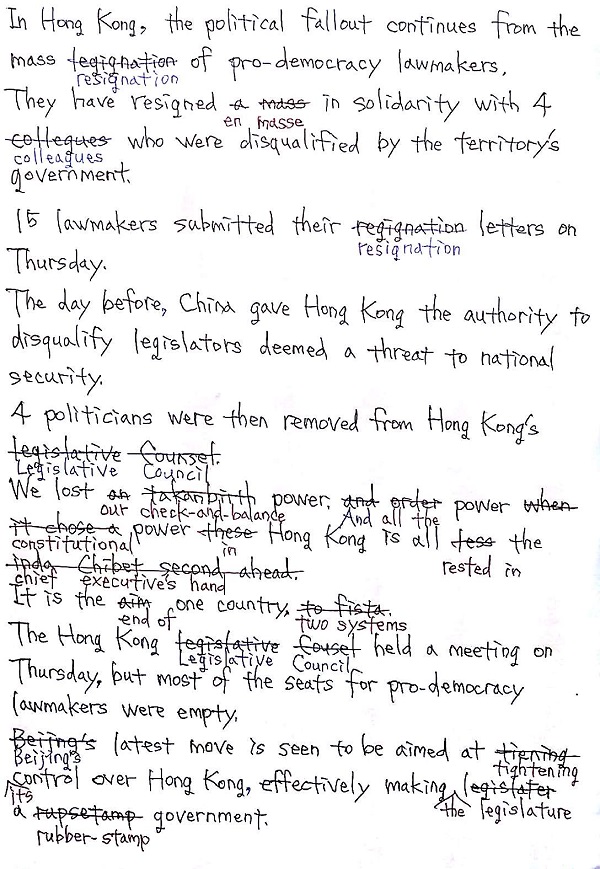 In Hong Kong, the political fallout continues from the
mass legignation of pro-democracy lawmakers.
resignation
They have resigned a mass in solidarity with 4
en masse
collegues who were disqualified by the territory's
colleagues
government.
15 lawmakers submitted their regignation letters on
resignation
Thursday.
The day before, China gave Hong Kong the authority to
disqualify legislators deemed a threat to national
security.
4 politicians were then removed from Hong Kong's
legislative Counset.
Legislative Council
We lost an takanbirth power, and order power when
our check-and-balance And all the
it chose a power these Hong Kong is all less the
constitutional in rested in
indo Chibet second ahead.
chief executive's hand
It is the aim one country, to fista.
end of two systems
The Hong Kong legislative Couset held a meeting on
Legislative Council
Thursday, but most of the seats for pro-democracy
lawmakers were empty.
Beijing's latest move is seen to be aimed at tiening
Beijing's tightening
control over Hong Kong, effectively making legislater
its the legislature
a rupsetamp government.
rubber-stamp